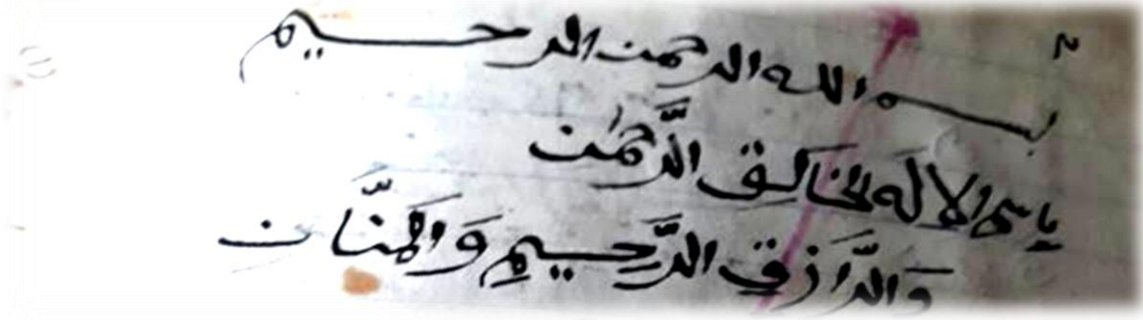 بسم الله الرحمن الرحيم
باسم الإله الخالق الرَّحمٰن
وَالرَّازقِ الرَّحِيمِ وَالمنَّان